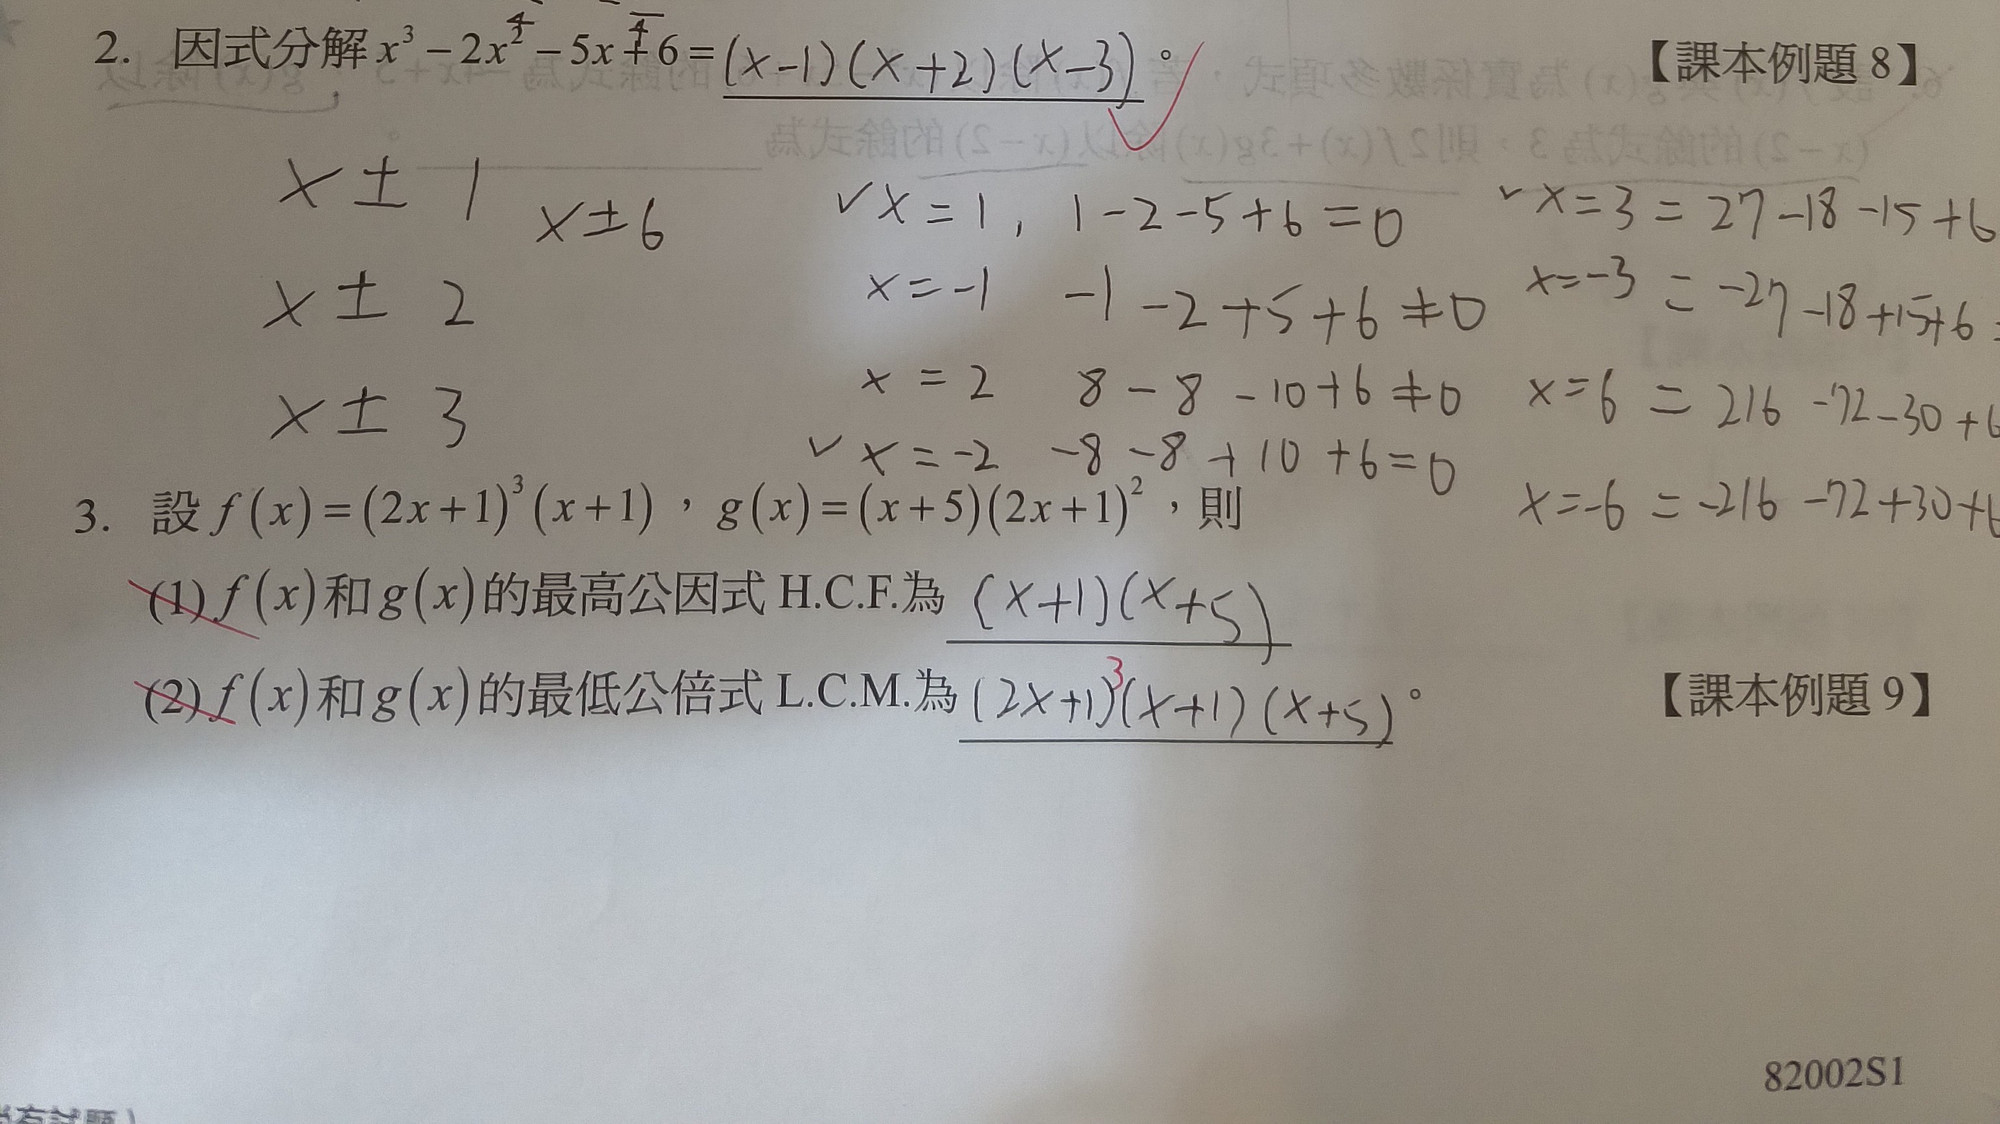 2. 因式分解 x³ − 2x² − 5x + 6 = (x−1)(x+2)(x−3)。 【課本例題 8】
x ± 1 x±6 ✓x=1, 1−2−5+6=0 ✓x=3 = 27−18−15+6
x=−1 −1−2+5+6≠0 x=−3 = −27−18+15+6=
x ± 2
x=2 8−8−10+6≠0 x=6 = 216−72−30+6
x ± 3
✓x=−2 −8−8+10+6=0 x=−6 = −216−72+30+6
3. 設 f(x)=(2x+1)³(x+1),g(x)=(x+5)(2x+1)²,則
(1) f(x)和g(x)的最高公因式 H.C.F.為 (x+1)(x+5)
(2) f(x)和g(x)的最低公倍式 L.C.M.為 (2x+1)³(x+1)(x+5)。 【課本例題 9】
82002S1